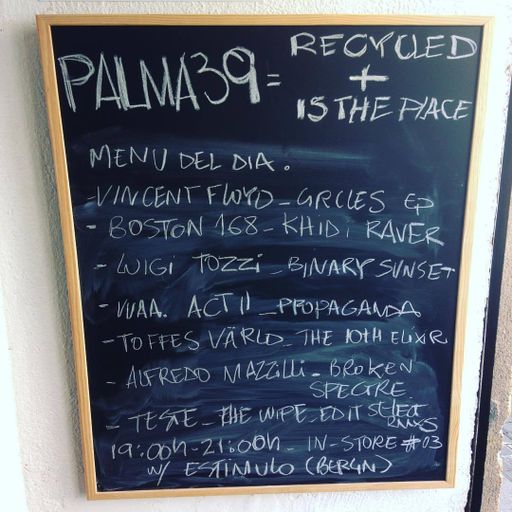 PALMA39 = RECYCLED
+
IS THE PLACE
MENU DEL DIA.
- VINCENT FLOYD _ CIRCLES EP
- BOSTON 168 _ KHIDI RAVER
- LUIGI TOZZI _ BINARY SUNSET
- VVAA. ACT II _ PROPAGANDA
- TOFFES VÄRLD _ THE 10TH ELIXIR
- ALFREDO MAZZILLI _ BROKEN
SPECTRE
- TESTE _ THE WIPE _ EDIT SELECT
RMXS
19:00h - 21:00h _ IN-STORE #03
W/ ESTIMULO (BERLIN)